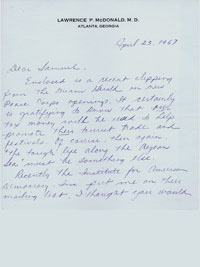 LAWRENCE P. McDONALD, M. D.
ATLANTA, GEORGIA
April 23, 1967
Dear Samuel,
Enclosed is a recent clipping
from the Miami Herald on new
Peace Corps openings. It certainly
is gratifying to know that our
tax money will be used to help
promote their tourist trade and
festivals. Of course, then again,
"the tough" life along the Aegean
Sea" must be something else.
Recently the Institute for American
Democracy, Inc. put me on their
mailing list. I thought you would